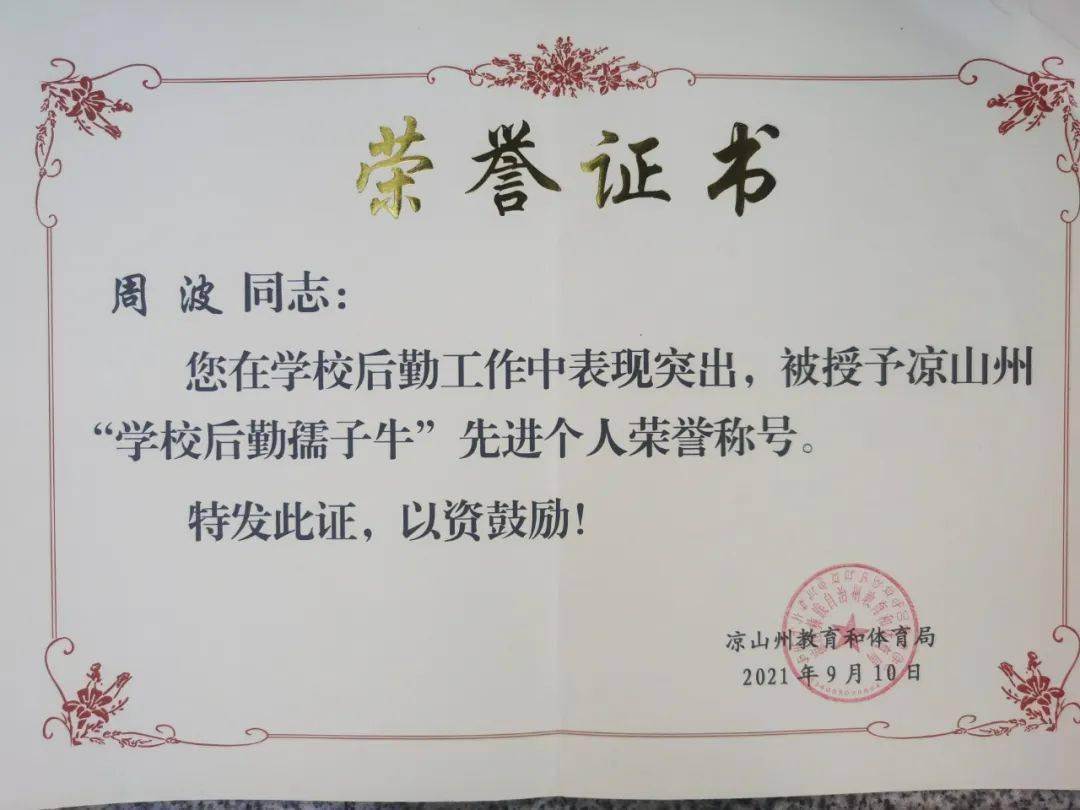 荣誉证书
周 波 同志：
您在学校后勤工作中表现突出，被授予凉山州
“学校后勤孺子牛”先进个人荣誉称号。
特发此证，以资鼓励！
凉山州教育和体育局
2021 年 9 月 10 日